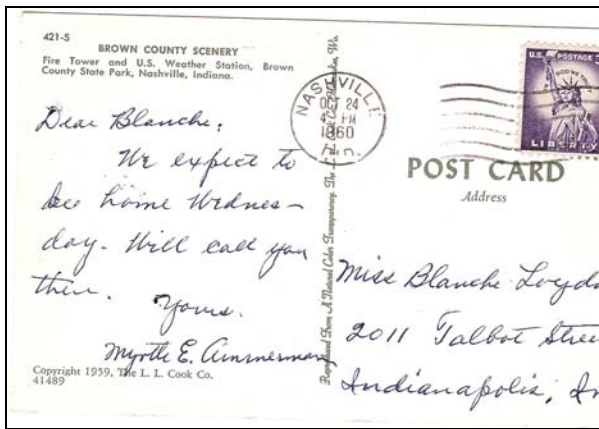 421-S
BROWN COUNTY SCENERY
Fire Tower and U.S. Weather Station, Brown
County State Park, Nashville, Indiana.
Dear Blanche,
We expect to
be home Wednes-
day. Will call you
then.
Yours.
Myrtle E. Ammerman
Copyright 1959, The L. L. Cook Co.
41489
Reproduced From A Natural Color Transparency, The L. L. Cook Co., Milwaukee, Wis.
NASHVILLE
OCT 24
4 PM
1960
IND.
U.S. POSTAGE
IN GOD WE TRUST
LIBERTY
POST CARD
Address
Miss Blanche
2011 Talbot Stree
Indianapolis, In